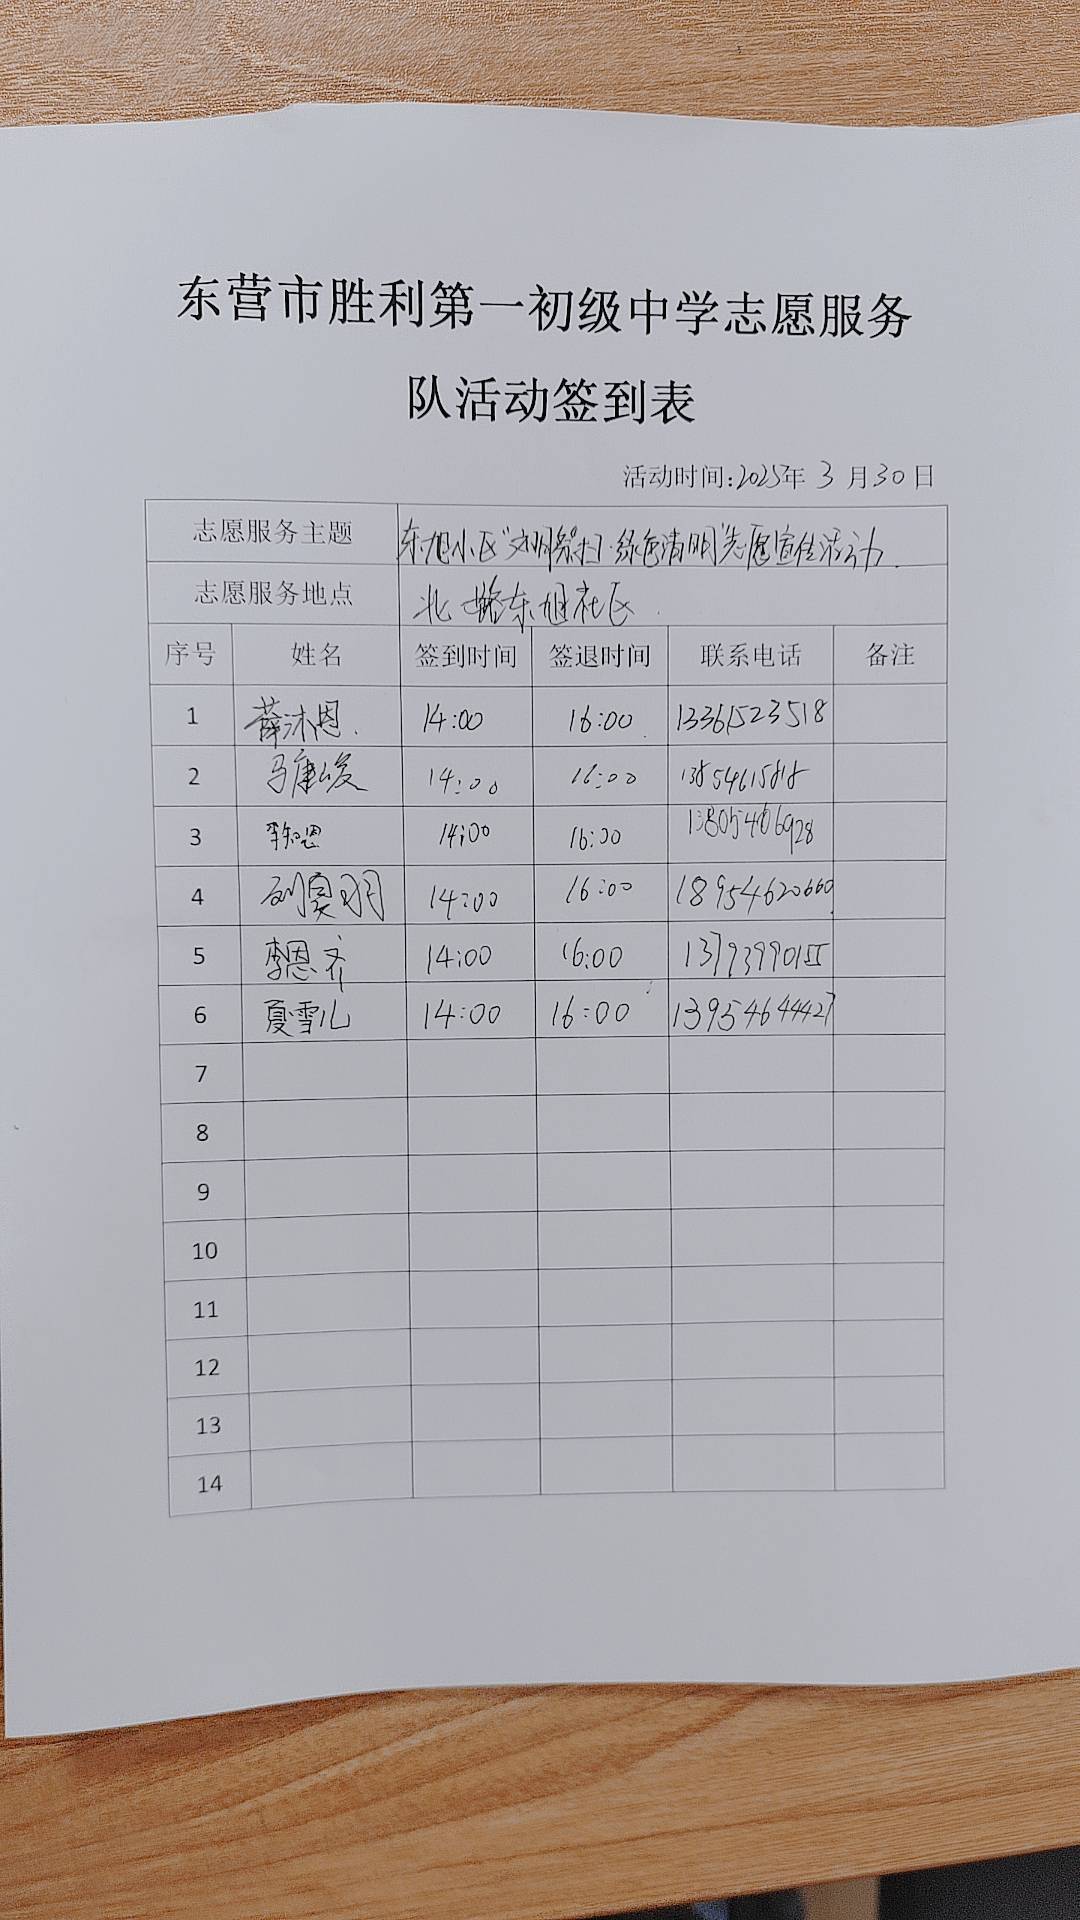 东营市胜利第一初级中学志愿服务
队活动签到表
活动时间:2025年 3 月 30 日
志愿服务主题 东旭小区"文明祭扫·绿色清明"志愿宣传活动.
志愿服务地点 北一路东旭社区.
序号 姓名 签到时间 签退时间 联系电话 备注
1 薛沐恩. 14:00 16:00 13361523518
2 马康峻 14:00 16:00 13854615818
3 李知恩 14:00 16:00 13805466928
4 刘昊玥 14:00 16:00 18954620660
5 李恩齐 14:00 16:00 13793990155
6 夏雪儿 14:00 16:00 13954644427
7
8
9
10
11
12
13
14